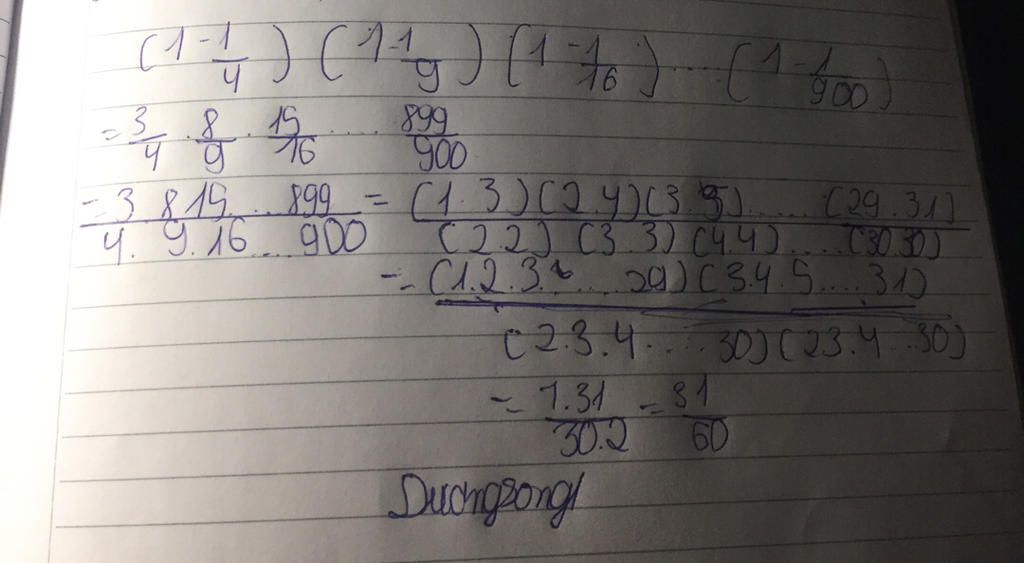 (1 - 1/4) (1 - 1/9) (1 - 1/16) .... (1 - 1/900)
= 3/4 . 8/9 . 15/16 .... 899/900
= 3 8 15 ... 899 / 4. 9. 16 .... 900 = (1.3)(2.4)(3.5) ..... (29.31) / (2.2) (3.3) (4.4) ..... (30.30)
= (1.2.3. .... 29)(3.4.5....31) / (2.3.4 .... 30)(2.3.4...30)
= 1.31/30.2 = 31/60
Duongsongl